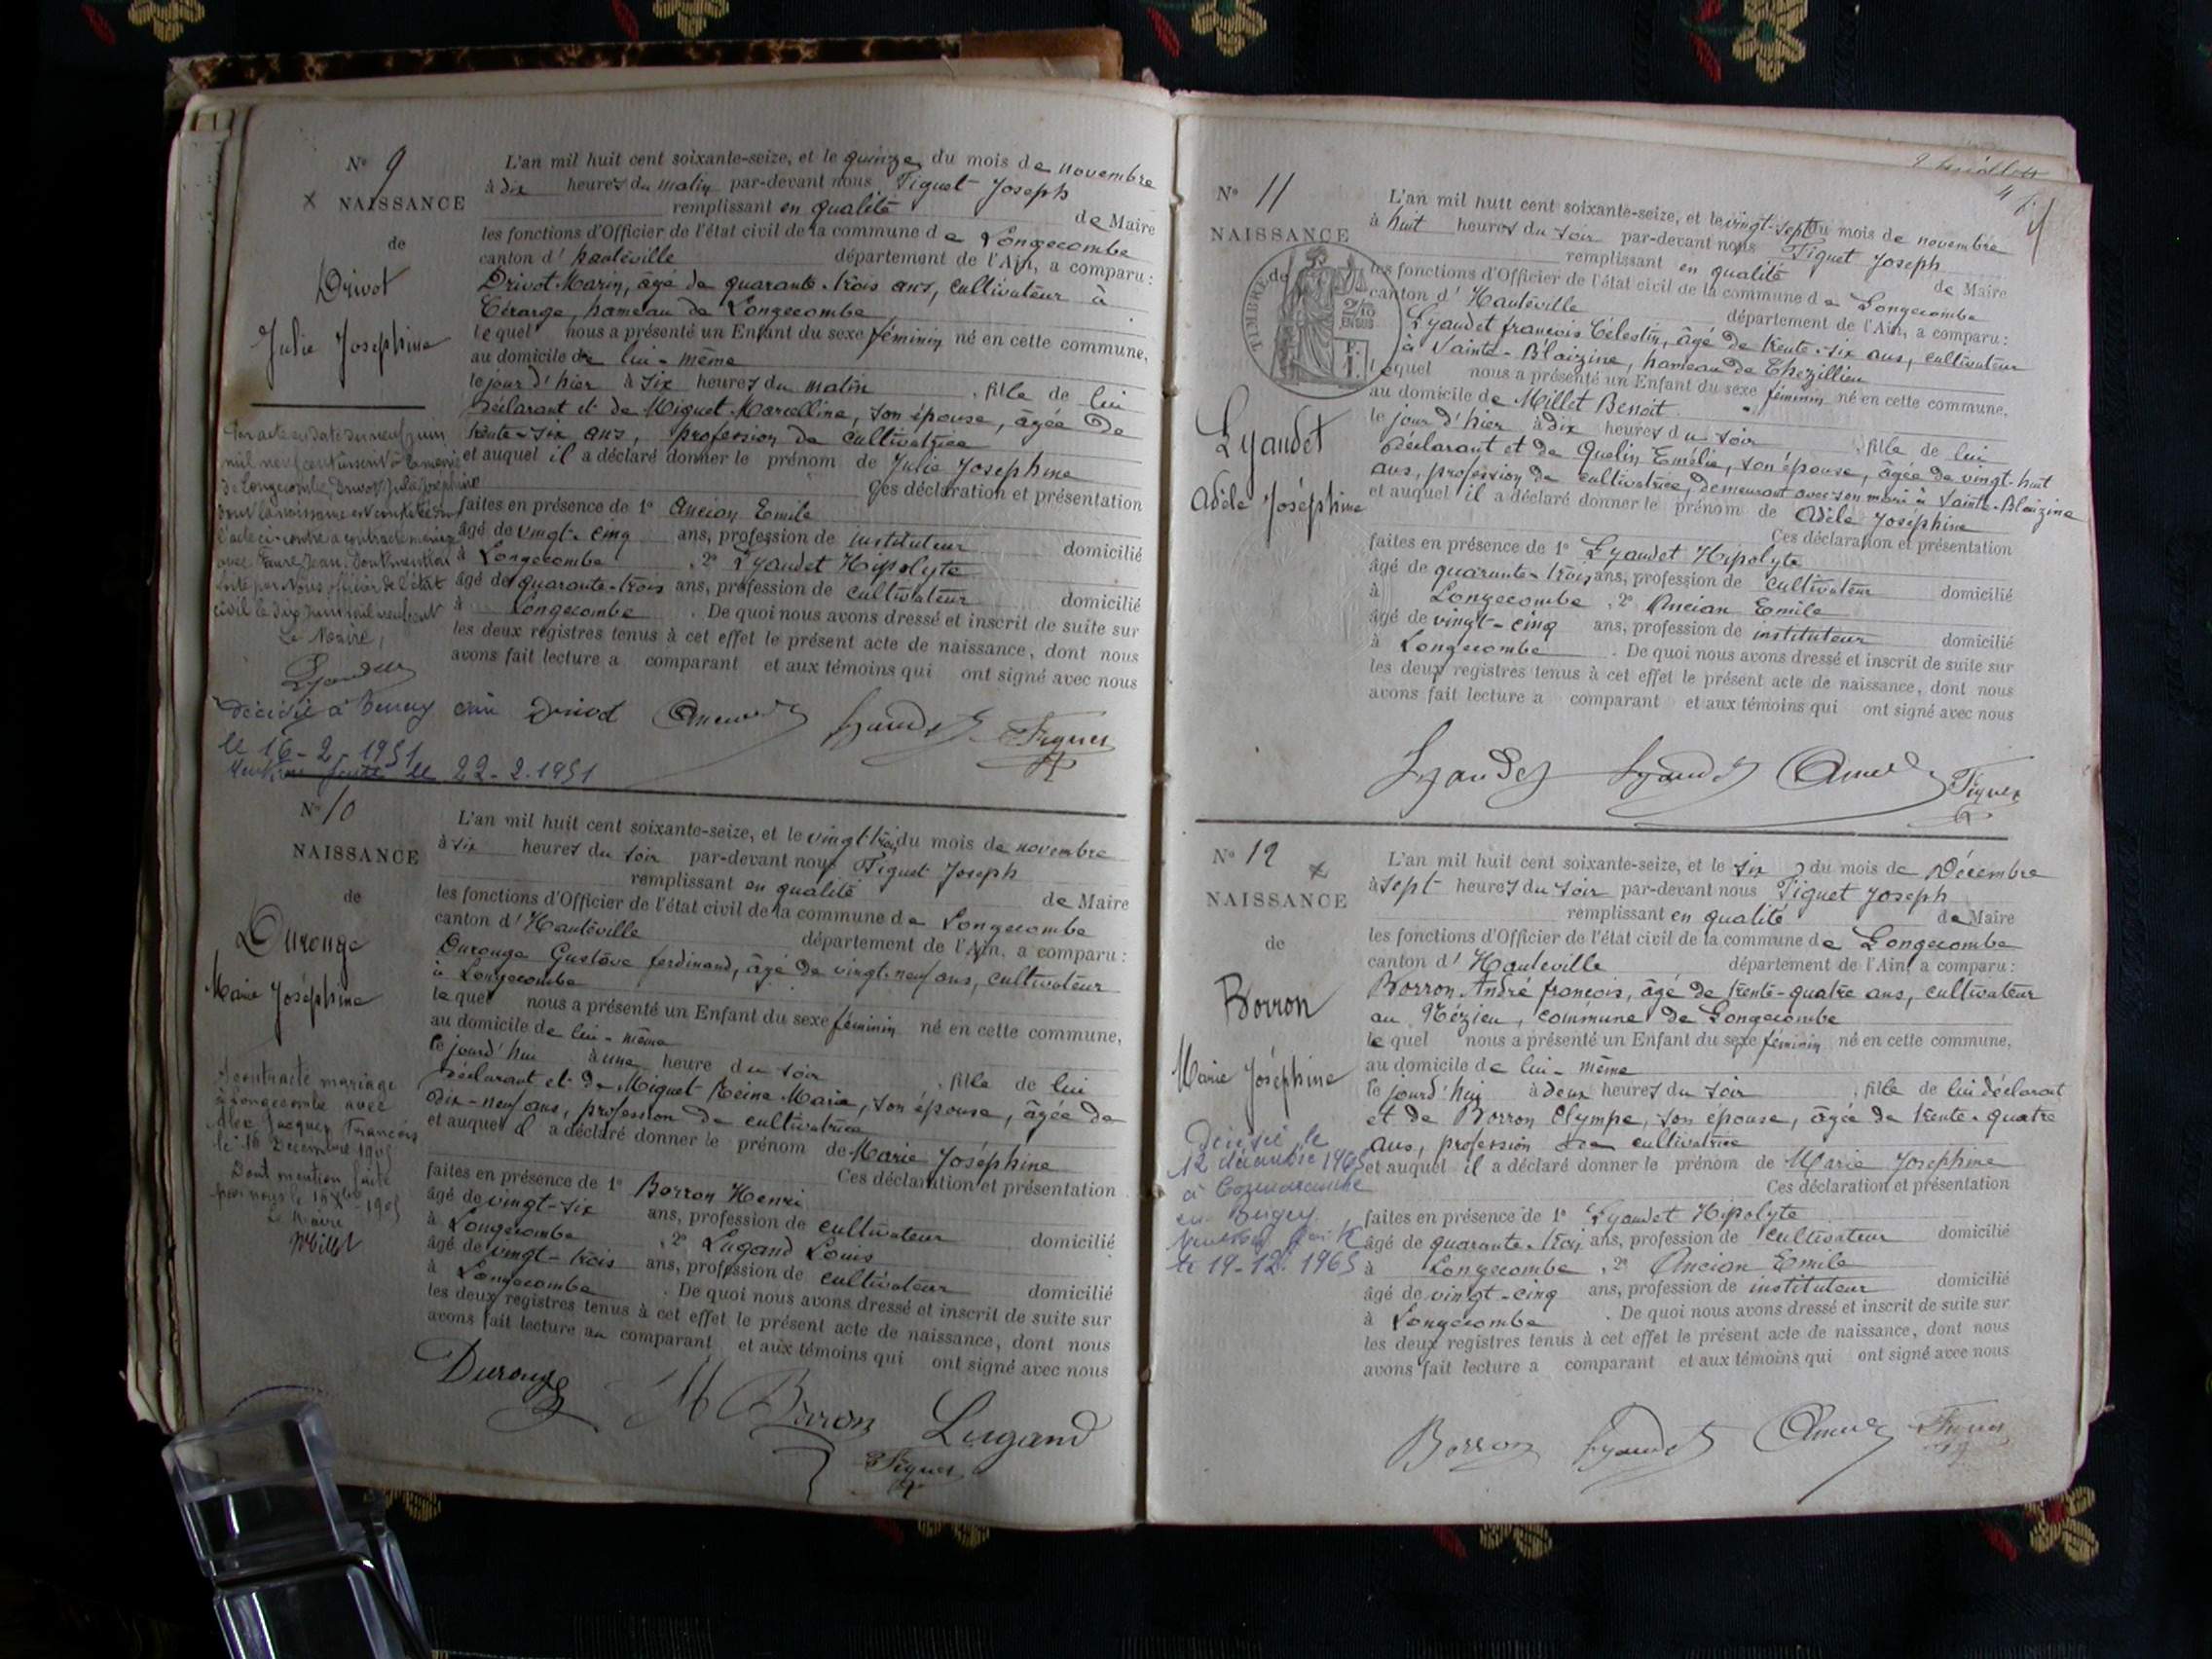 N° 9
× NAISSANCE
de
Drivot
Julie Josephine
L'an mil huit cent soixante-seize, et le quinze du mois de novembre
à dix heures du matin par-devant nous Tiguet Joseph
remplissant en qualité de Maire
les fonctions d'Officier de l'état civil de la commune de Longecombe
canton d'hauteville département de l'Ain, a comparu :
Drivot Marin, âgé de quarante-trois ans, cultivateur à
hameau de Longecombe
lequel nous a présenté un Enfant du sexe féminin né en cette commune,
au domicile de lui-même
le jour d'hier à six heures du matin , fille de lui
déclarant et de Miguet Marcelline, son épouse, âgée de
trente-six ans, profession de cultivatrice
et auquel il a déclaré donner le prénom de Julie Josephine
Ces déclaration et présentation
faites en présence de 1° Ancian Emile
âgé de vingt-cinq ans, profession de instituteur domicilié
à Longecombe , 2° Lyaudet Hipolyte
âgé de quarante-trois ans, profession de cultivateur domicilié
à Longecombe . De quoi nous avons dressé et inscrit de suite sur
les deux registres tenus à cet effet le présent acte de naissance, dont nous
avons fait lecture a comparant et aux témoins qui ont signé avec nous
Par acte en date du neuf juin
mil neuf cent inscrit à la mairie
de Longecombe, Drivot Julie Josephine
dont la naissance est constatée
l'acte ci-contre a contracté mariage
avec Faure Jean. Dont mention
faite par Nous officier de l'état
civil le dix juin mil neuf cent
Le Maire,
Lyaudet
Décédée à
le 16-2-1951
le 22-2-1951
Drivot Ancian Lyaudet Tiguet
N° 10
NAISSANCE
de
Duronge
Marie Joséphine
L'an mil huit cent soixante-seize, et le vingt-trois du mois de novembre
à six heures du soir par-devant nous Tiguet Joseph
remplissant en qualité de Maire
les fonctions d'Officier de l'état civil de la commune de Longecombe
canton d'Hauteville département de l'Ain, a comparu :
Duronge Gustave ferdinand, âgé de vingt-neuf ans, cultivateur
à Longecombe
lequel nous a présenté un Enfant du sexe féminin né en cette commune,
au domicile de lui-même
le jourd'hui à une heure du soir , fille de lui
déclarant et de Miguet Reine Marie, son épouse, âgée de
dix-neuf ans, profession de cultivatrice
et auquel il a déclaré donner le prénom de Marie Joséphine
Ces déclaration et présentation
faites en présence de 1° Borron Henri
âgé de vingt-six ans, profession de cultivateur domicilié
à Longecombe , 2° Lugand Louis
âgé de vingt-trois ans, profession de cultivateur domicilié
à Longecombe . De quoi nous avons dressé et inscrit de suite sur
les deux registres tenus à cet effet le présent acte de naissance, dont nous
avons fait lecture au comparant et aux témoins qui ont signé avec nous
A contracté mariage
à Longecombe avec
Jacques François
le 16 Décembre 1905
Dont mention faite
par nous le 1905
Le Maire
Millet
Duronge Borron Lugand
Tiguet
N° 11
NAISSANCE
de
TIMBRE
2/10
EN SUS
Lyaudet
Adèle Joséphine
L'an mil huit cent soixante-seize, et le vingt-sept du mois de novembre
à huit heures du soir par-devant nous Tiguet Joseph
remplissant en qualité de Maire
les fonctions d'Officier de l'état civil de la commune de Longecombe
canton d'Hauteville département de l'Ain, a comparu :
Lyaudet françois Célestin, âgé de trente-six ans, cultivateur
à Sainte-Blaizine, hameau de Thezillieu
lequel nous a présenté un Enfant du sexe féminin né en cette commune,
au domicile de Millet Benoit
le jour d'hier à dix heures du soir , fille de lui
déclarant et de Quelin Emélie, son épouse, âgée de vingt-huit
ans, profession de cultivatrice, demeurant avec son mari à Sainte-Blaizine
et auquel il a déclaré donner le prénom de Adèle Joséphine
Ces déclaration et présentation
faites en présence de 1° Lyaudet Hipolyte
âgé de quarante-trois ans, profession de cultivateur domicilié
à Longecombe , 2° Ancian Emile
âgé de vingt-cinq ans, profession de instituteur domicilié
à Longecombe . De quoi nous avons dressé et inscrit de suite sur
les deux registres tenus à cet effet le présent acte de naissance, dont nous
avons fait lecture a comparant et aux témoins qui ont signé avec nous
Lyaudet Lyaudet Ancian Tiguet
N° 12 ×
NAISSANCE
de
Borron
Marie Joséphine
L'an mil huit cent soixante-seize, et le six du mois de Décembre
à sept heures du soir par-devant nous Tiguet Joseph
remplissant en qualité de Maire
les fonctions d'Officier de l'état civil de la commune de Longecombe
canton d'Hauteville département de l'Ain, a comparu :
Borron André françois, âgé de trente-quatre ans, cultivateur
au Nézieu, commune de Longecombe
lequel nous a présenté un Enfant du sexe féminin né en cette commune,
au domicile de lui-même
le jourd'hui à deux heures du soir , fille de lui déclarant
et de Borron Olympe, son épouse, âgée de trente-quatre
ans, profession de cultivatrice
et auquel il a déclaré donner le prénom de Marie Josephine
Ces déclaration et présentation
faites en présence de 1° Lyaudet Hipolyte
âgé de quarante-trois ans, profession de cultivateur domicilié
à Longecombe , 2° Ancian Emile
âgé de vingt-cinq ans, profession de instituteur domicilié
à Longecombe . De quoi nous avons dressé et inscrit de suite sur
les deux registres tenus à cet effet le présent acte de naissance, dont nous
avons fait lecture a comparant et aux témoins qui ont signé avec nous
Décédée le
12 décembre 1965
à Cormaranche
en Bugey
le 19-12-1965
Borron Lyaudet Ancian Tiguet